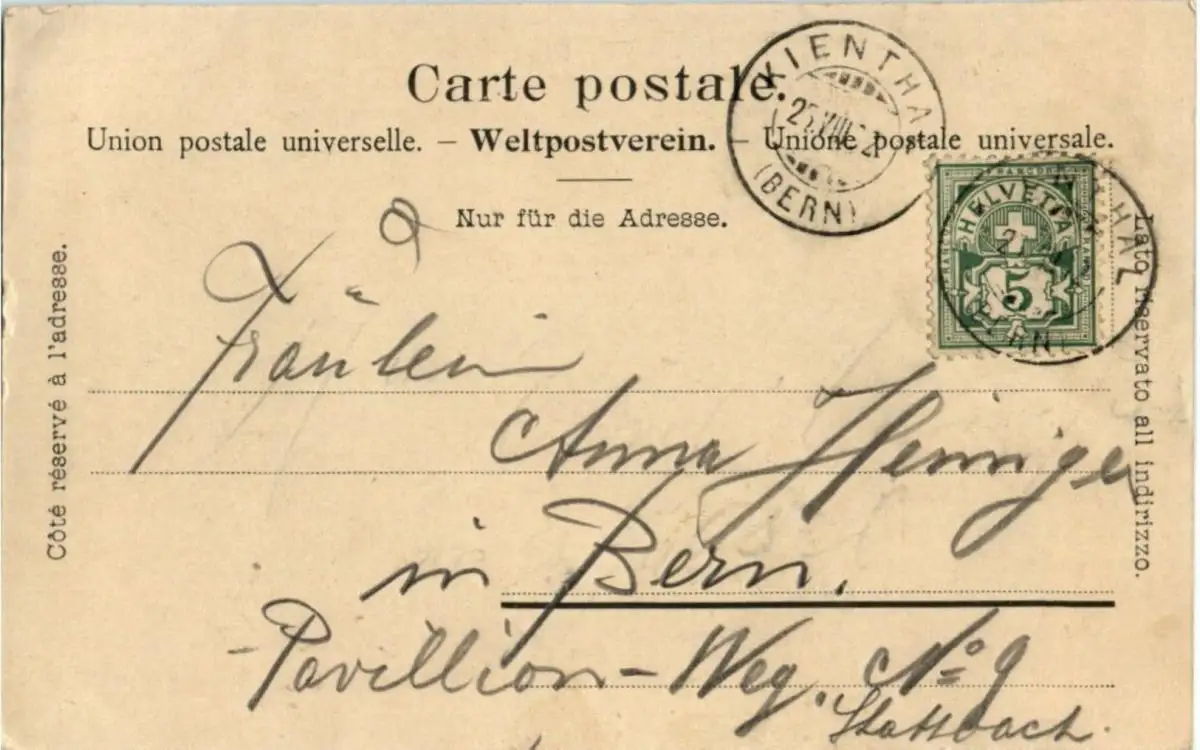 Carte postale.
Union postale universelle. – Weltpostverein. – Unione postale universale.
Nur für die Adresse.
Côté réservé à l'adresse.
Lato riservato all indirizzo.
KIENTHAL
(BERN)
HELVETIA
5
Fräulein
Anna
in Bern.
Pavillion-Weg. No 9